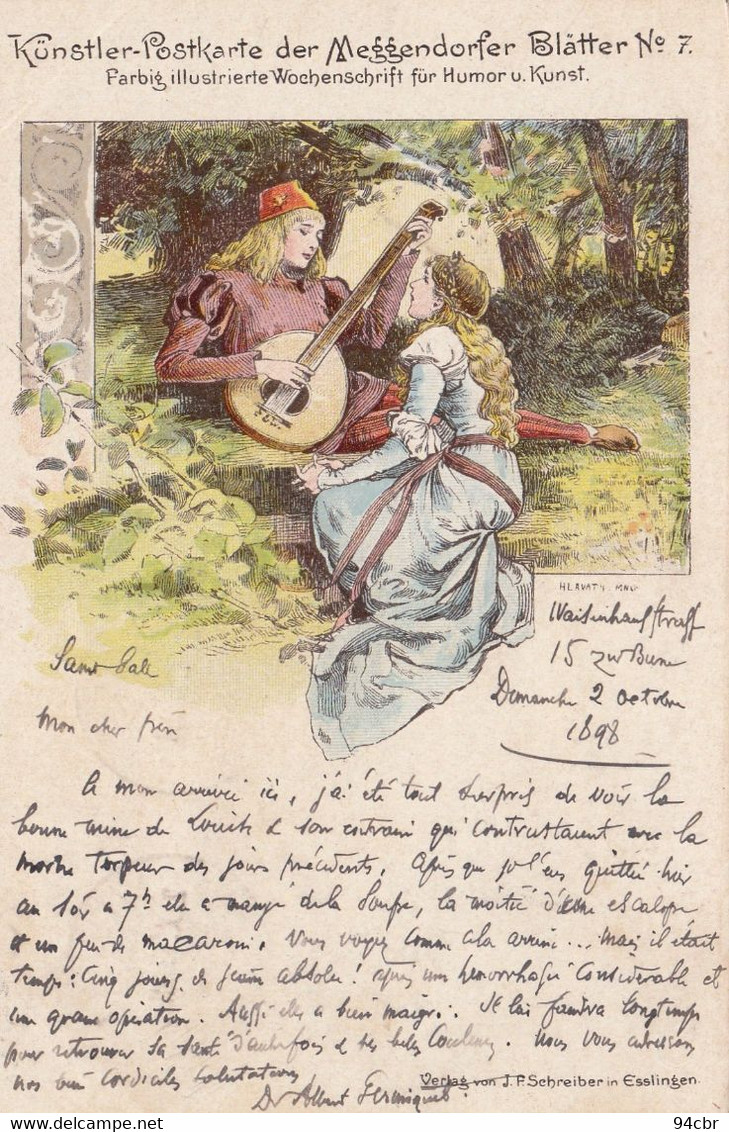 Künstler-Postkarte der Meggendorfer Blätter No 7.
Farbig illustrierte Wochenschrift für Humor u. Kunst.
HLAVATY
15 zur
Dimanche 2 octobre
1898
Mon cher
A mon arrivée ici, j'ai été tout surpris de voir la
bonne mine de Louise & son entrain qui contrastaient avec la
morne torpeur des jours précédents. Après que je l'eus quittée hier
au soir à 7h elle a mangé de la soupe, la moitié d'une escalope
et un peu de macaroni. Vous voyez comme ... mais il était
temps : Cinq jours de jeûn absolu ! après une hémorrhagie considérable et
une grave opération. Aussi elle a bien maigri. Il lui faudra longtemps
pour retrouver sa santé d'autrefois & ses belles couleurs. Nous vous adressons
nos bien cordiales salutations
Dr Albert
Verlag von J. F. Schreiber in Esslingen.
94cbr